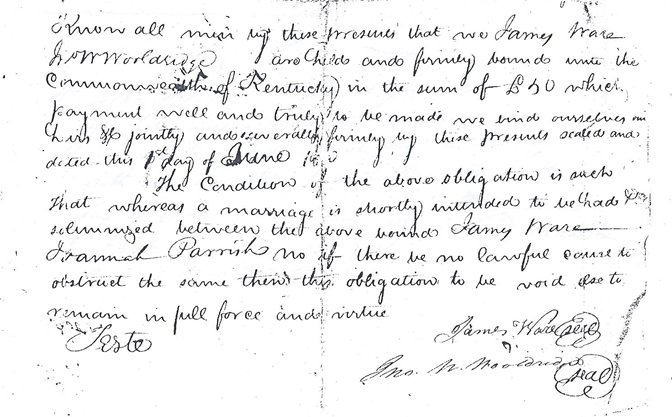 Know all men by these presents that we James Ware
Jno W Wooldridge are held and firmly bound unto the
Commonwealth of Kentucky in the sum of £50 which
payment well and truly to be made we bind ourselves our
heirs &c jointly and severally firmly by these presents sealed and
dated this 1st day of June
The Condition of the above obligation is such
That whereas a marriage is shortly intended to be had &
solemnized between the above bound James Ware
Hannah Parrish no if there be no lawful cause to
obstruct the same then this obligation to be void else to
remain in full force and virtue
Teste
James Ware seal
Jno. W. Wooldridge seal